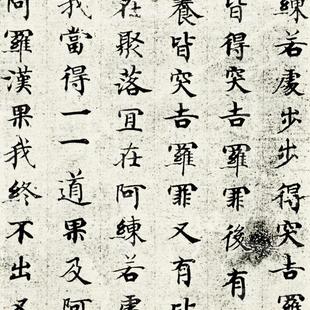 練若處步步得突吉羅
皆得突吉羅罪後有
養皆突吉羅罪又有
在聚落冝在阿練若處
我當得一一道果及阿
阿羅漢果我終不出